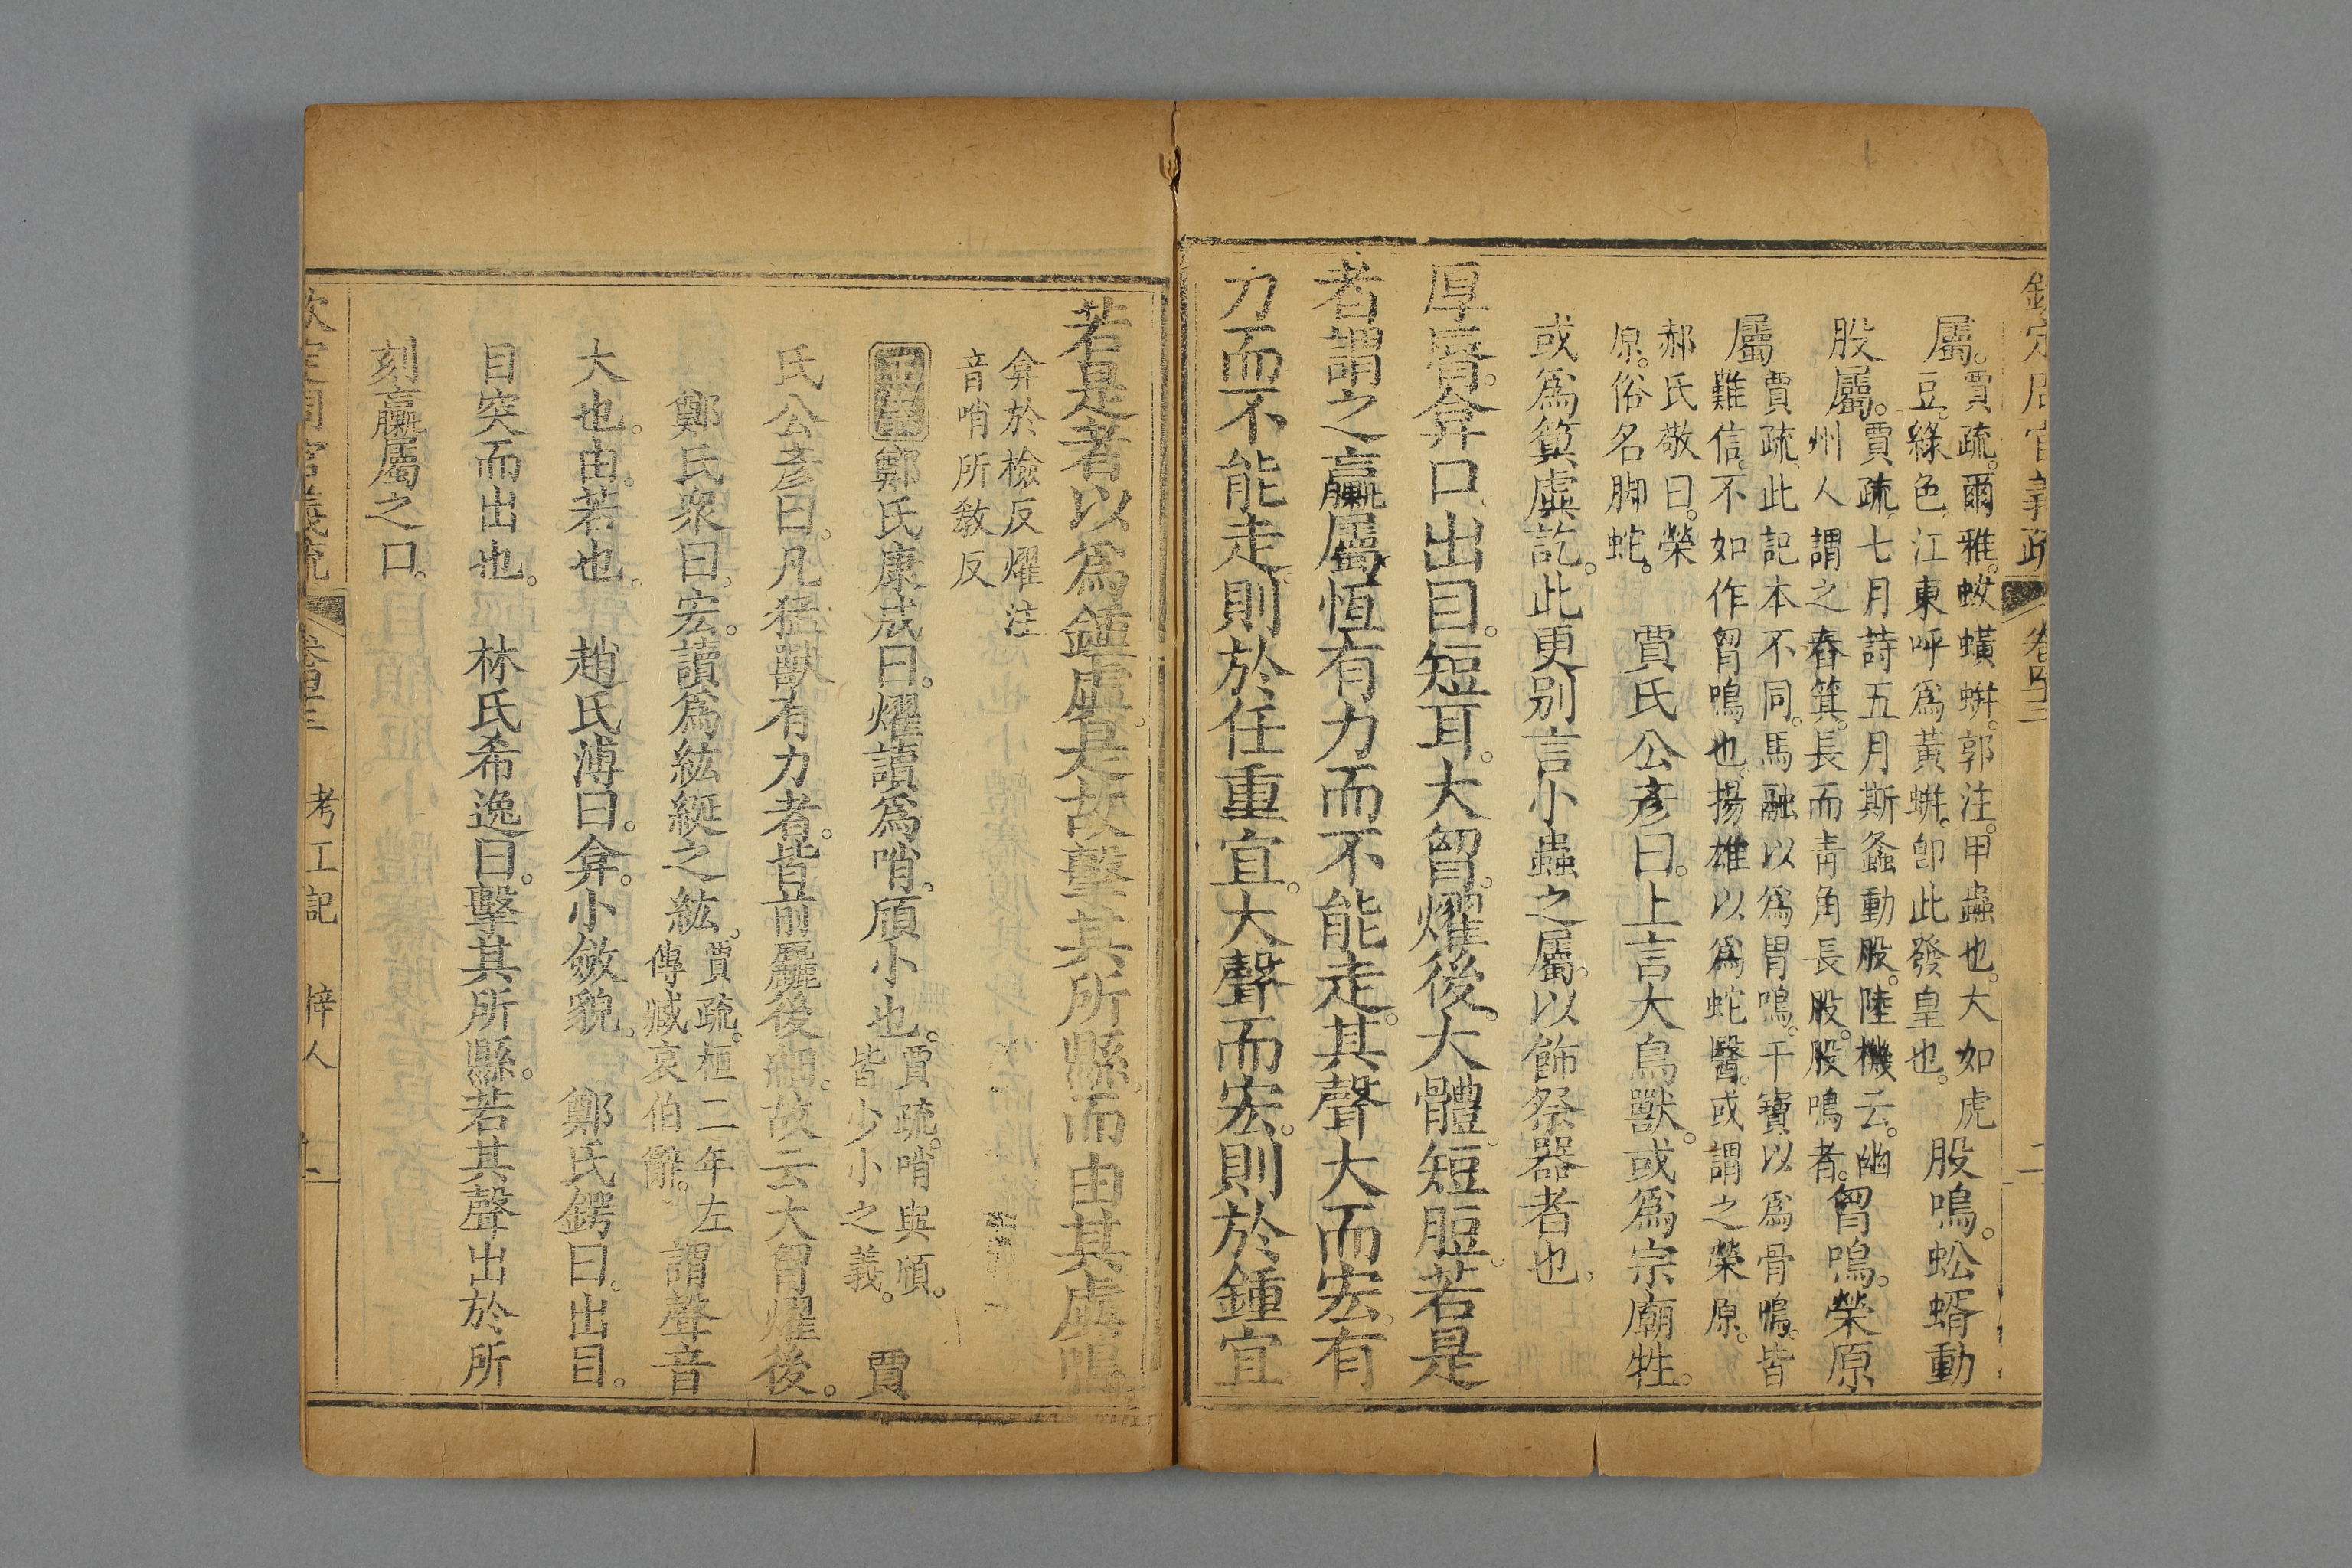 欽定周官義疏 卷四十三 二
屬。賈疏。爾雅。蛂蟥蛢。郭注。甲蟲也。大如虎
豆。綠色。江東呼爲黃蛢。卽此發皇也。股鳴。蚣蝑動
股屬。賈疏。七月詩五月斯螽動股。陸機云。幽
州人謂之舂箕。長而青。角長股。股鳴者。胷鳴。榮原
屬。賈疏。此記本不同。馬融以爲胃鳴。干寶以爲骨鳴。皆
難信。不如作胷鳴也。揚雄以爲蛇醫。或謂之榮原。
郝氏敬曰。榮
原。俗名脚蛇。賈氏公彥曰。上言大鳥獸。或爲宗廟牲。
或爲筍虡訖。此更別言小蟲之屬。以飾祭器者也。
厚脣弇口。出目短耳。大胷燿後。大體短脰。若是
者謂之臝屬。恒有力而不能走。其聲大而宏。有
力而不能走。則於任重宜。大聲而宏。則於鍾宜
若是者以爲鍾虡。是故擊其所縣。而由其虡鳴
弇於檢反燿注
音哨所敎反
正義鄭氏康成曰。燿讀爲哨。頎小也。賈疏。哨與頎。
皆少小之義。賈
氏公彥曰。凡猛獸有力者。皆前麤後細。故云大胷燿後。
鄭氏衆曰。宏。讀爲紘綖之紘。賈疏。桓二年左
傳臧哀伯辭。謂聲音
大也。由。若也。趙氏溥曰。弇。小斂貌。鄭氏鍔曰。出目。
目突而出也。林氏希逸曰。擊其所縣。若其聲出於所
刻臝屬之口。
欽定周官義疏 卷四十三 考工記 梓人 三